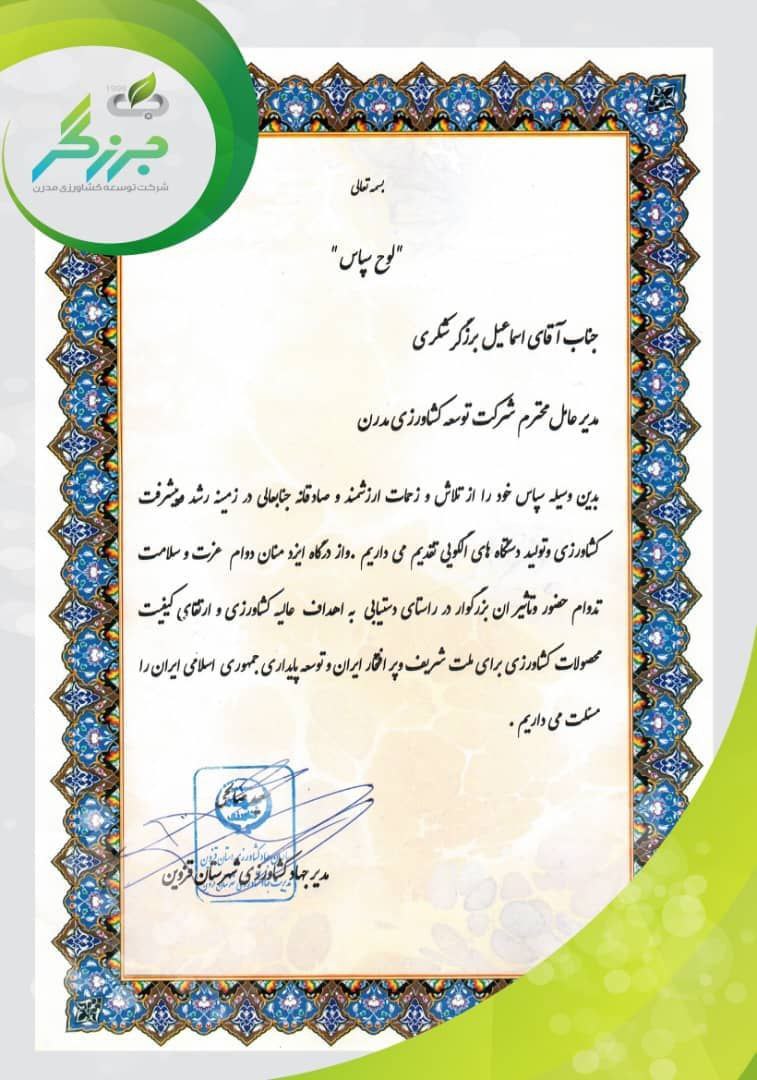 1996
برزگر
شرکت توسعه کشاورزی مدرن
بسمه تعالی
"لوح سپاس"
جناب آقای اسماعیل برزگر شکری
مدیر عامل محترم شرکت توسعه کشاورزی مدرن
بدین وسیله سپاس خود را از تلاش و زحمات ارزشمند و صادقانه جنابعالی در زمینه رشد وپیشرفت
کشاورزی وتولید دستگاه های الگویی تقدیم می داریم .واز درگاه ایزد منان دوام عزت و سلامت
تدوام حضور وتاثیر ان بزرگوار در راستای دستیابی به اهداف عالیه کشاورزی و ارتقای کیفیت
محصولات کشاورزی برای ملت شریف وپر افتخار ایران و توسعه پایداری جمهوری اسلامی ایران را
مسئلت می داریم .
مدیر جهاد کشاورزی شهرستان قزوین